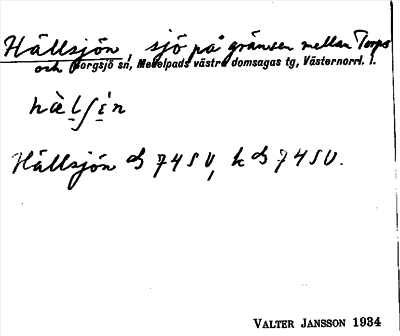 Hällsjön, sjö på gränsen mellan Torps
och Borgsjö sn, Medelpads västra domsagas tg, Västernorrl. l.
hä̀lʃi̇n
Hällsjön d 74 SV, k d 74 SV.
VALTER JANSSON 1934